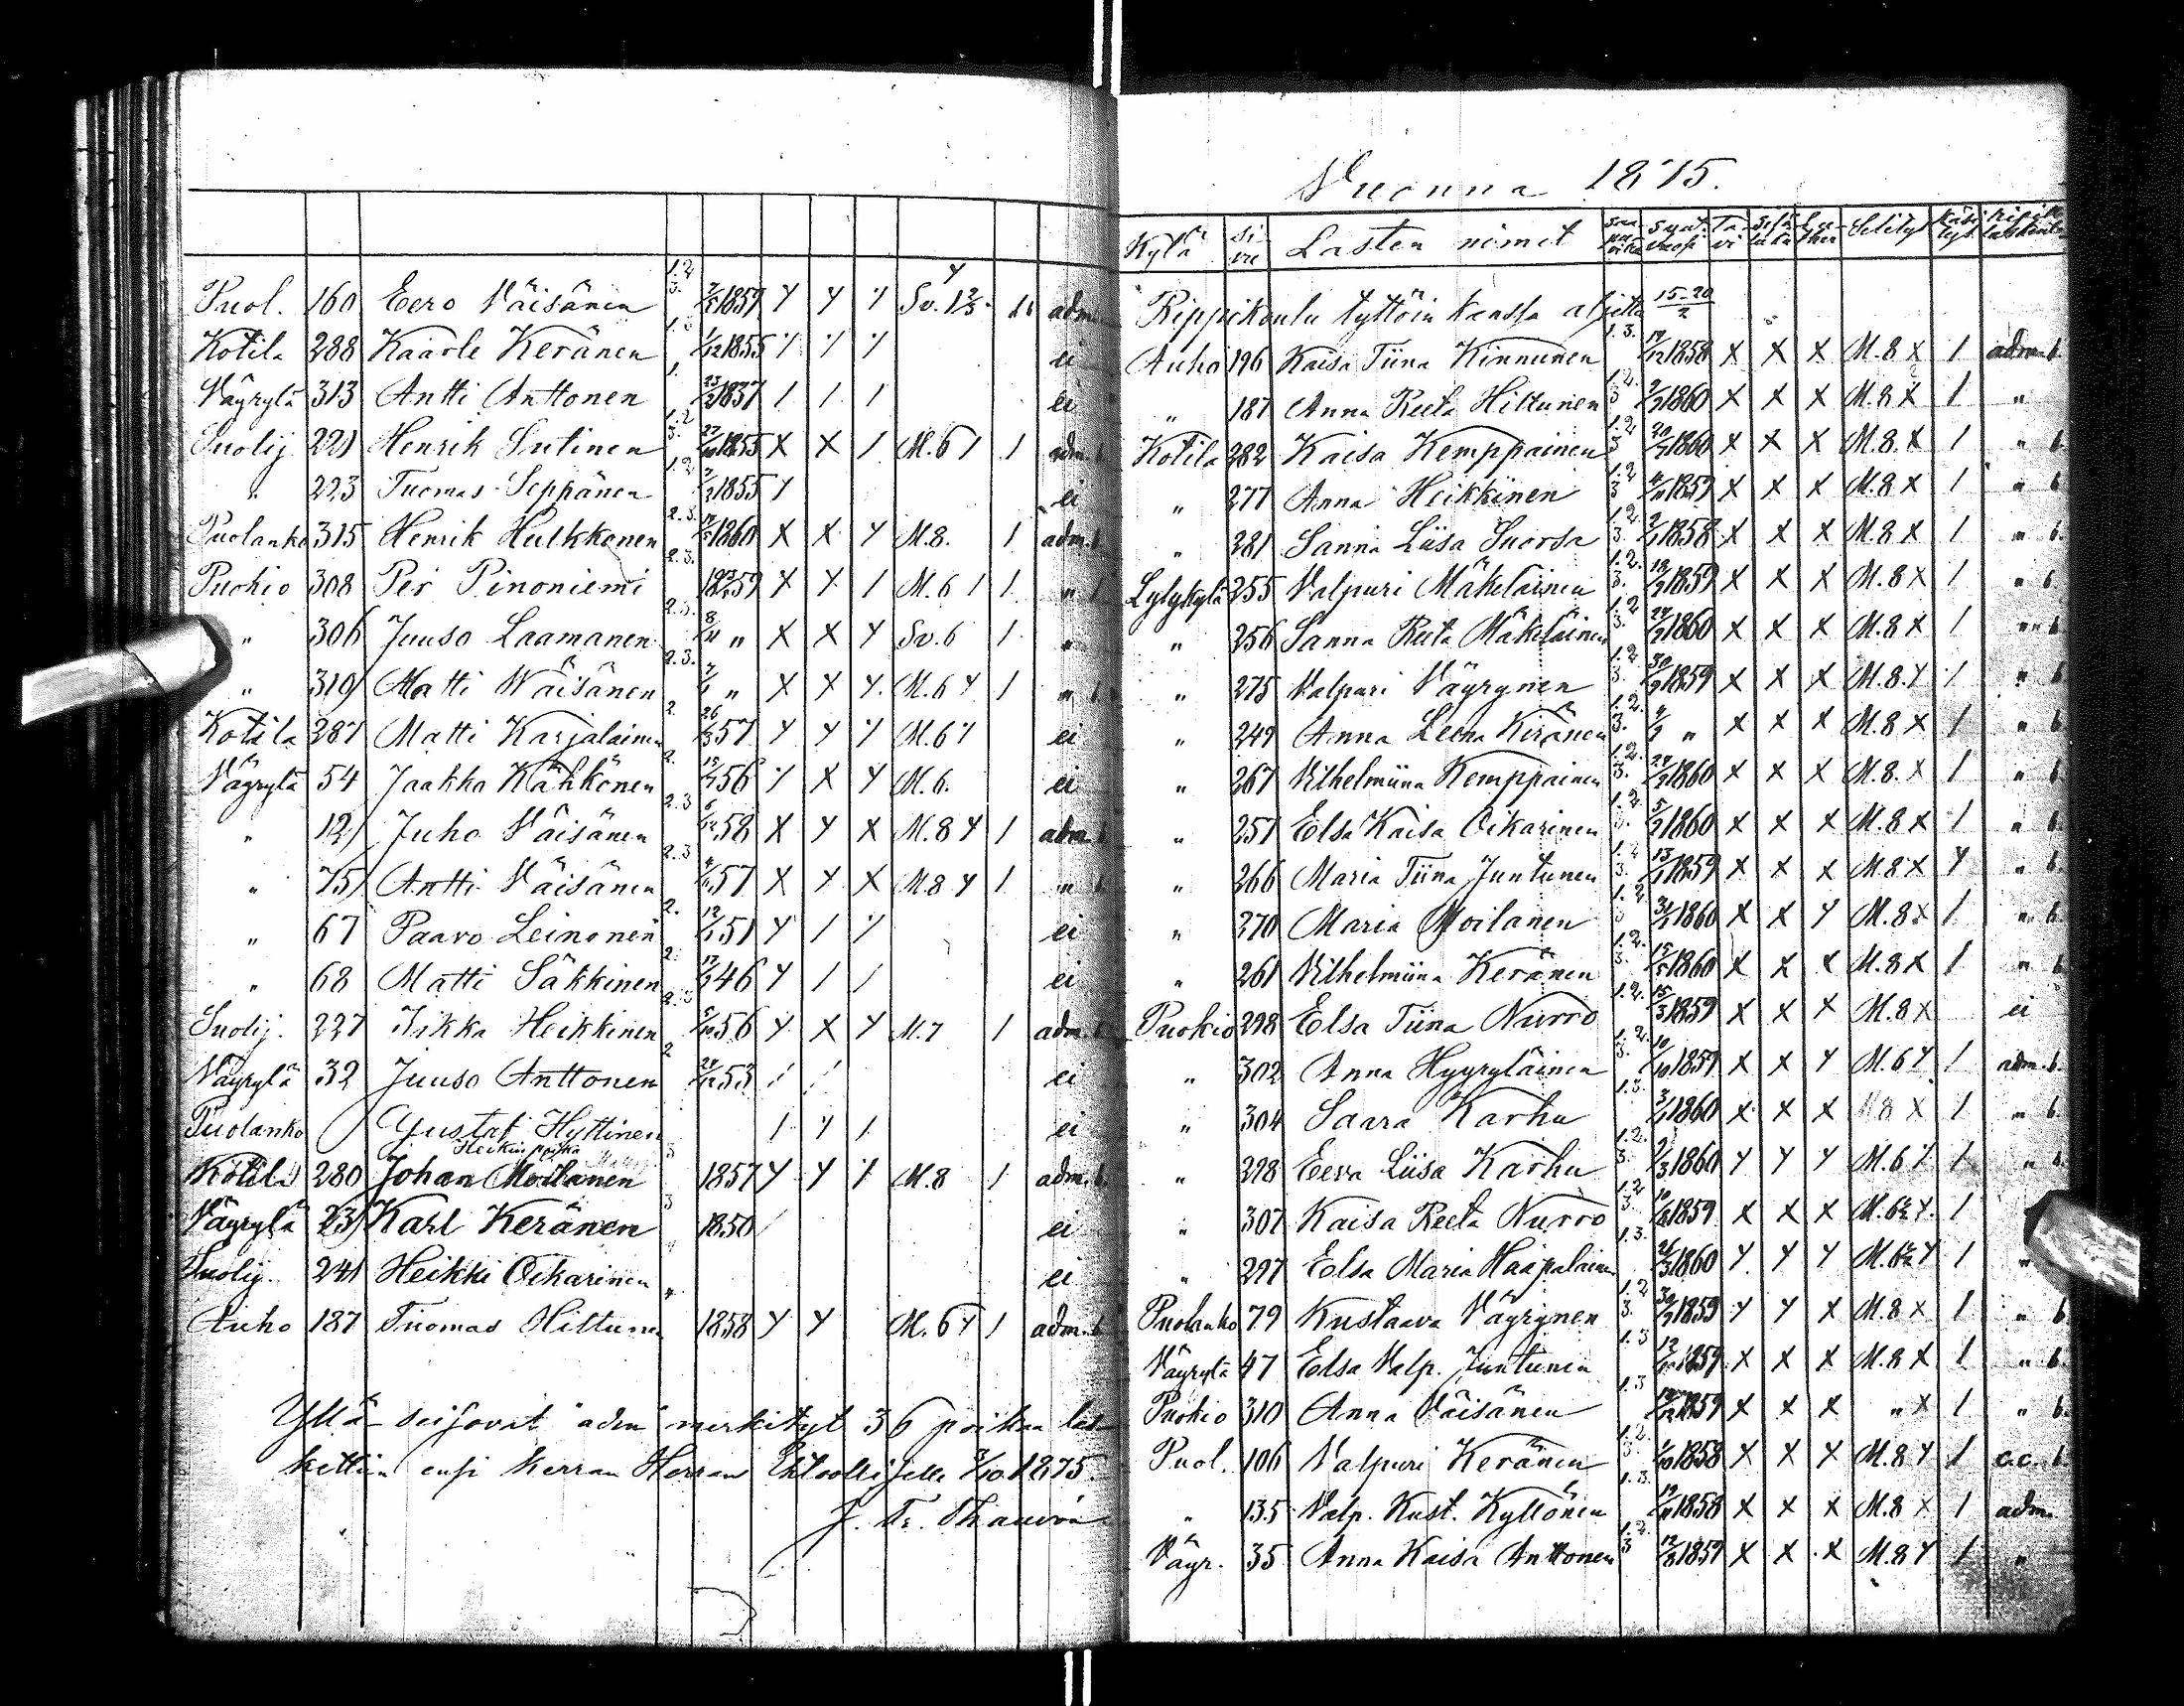 Puol. 160 Eero Väisänen 1.2 3. 2/5 1859 y y y Sv. 1 2/3. adm
Kotila 288 Kaarle Keränen 1.3 1/12 1855 y y y ei
Väyrylä 313 Antti Anttonen 1. 23/2 1837 1 1 1 ei
Suolij 221 Henrik Sutinen 1.2 3. 22/10 1855 X X 1 M.6 1 1 adm. b.
" 223 Tuomas Seppänen 1.2 1855 y ei
Puolanko 315 Henrik Hulkkonen 2.3. 1860 X X y M.8. 1 adm. b.
Puokio 308 Per Pinoniemi 2.3. 59 X y 1 M.6 1 1 "
" 306 Juuso Laamanen 2.3. 8/11 " X X y Sv.6 1 "
" 319 Matti Wäisänen 2.3. " X X y. M.6 y 1 " b
Kotila 287 Matti Karjalainen 2. 26/3 57 y y y M.6 y ei
Väyrylä 54 Jaakko Kähkönen 2. 56 y X y M.6. ei
" 12 Juho Väisänen 2.3 6/12 58 X y X M.8 y 1 adm. b
" 75 Antti Väisänen 2.3 57 X y X M.8 y 1 "
" 67 Paavo Leinonen 2. 12/1 51 y 1 y ei
" 68 Matti Säkkinen 2. 46 y 1 1 ei
Suolij. 227 Iikka Heikkinen 2.3 5/10 56 y X y M.7 1 adm. b
Väyrylä 32 Juuso Anttonen 2 24/12 53 1 1 ei
Puolanko Gustaf Hyttinen 1 y 1 ei
Heikin poika
Kotila 280 Johan Moilanen 3 1857 y y y M.8 1 adm. b.
Väyrylä 23 Karl Keränen 3 1850 1 ei
Suolij. 241 Heikki Oikarinen ei
Auho 187 Tuomas Hiltunen 1858 y y M.6 y 1 adm. b
Yllä seisovat "adm" merkityt 36 poikaa las-
kettiin ensi kerran Herran Ehtoolliselle 3/10 1875.
J. Fr. Thauvón
Vuonna 1875.
Kylä Si-vu Lasten nimet Synt. vuosi Ta-vi Sisä luku Selitys
Rippikoulu tyttöin kanssa aljettu 15-20/2
Auho 196 Kaisa Tiina Kinnunen 1.3. 17/12 1858 X X X M.8 X 1 adm. b.
" 187 Anna Reeta Hiltunen 1.2. 3 1860 X X X M.8 X 1 "
Kotila 282 Kaisa Kemppainen 1.2 3 1860 X X X M.8. X 1 " b.
" 277 Anna Heikkinen 1.2 3 1859 X X X M.8 X 1 " b.
" 281 Sanna Liisa Suorsa 1.2. 3. 1858 X X X M.8 X 1 " b.
Lylykylä 255 Valpuri Mäkeläinen 1.2. 3. 1859 X X X M.8 X 1 " b.
" 256 Sanna Reeta Mäkeläinen 1.2 3. 1860 X X X M.8 X 1 " b.
" 275 Valpuri Väyrynen 1.2. 3. 30/9 1859 X X X M.8. y 1 " b
" 249 Anna Leena Keränen 1.2. 3. " X X X M.8 X 1 " b
" 267 Vilhelmiina Kemppainen 1.2. 3. 1860 X X X M.8. X 1 " b.
" 251 Elsa Kaisa Oikarinen 1.2. 3. 1860 X X X M.8 X 1 " b.
" 266 Maria Tiina Juntunen 1.2 3. 1859 X X X M.8 X y " b.
" 270 Maria Moilanen 1.2 1860 X X y M.8 X 1 " b.
" 261 Vilhelmiina Keränen 1.2. 3. 15/5 1860 X X X M.8 X 1 " b
Puokio 298 Elsa Tiina Nurro 1.2. 15/3 1859 X X X M.8 X ei
" 302 Anna Hyyryläinen 1.2. 3. 10/10 1859 X X y M.6 y 1 adm. b.
" 304 Saara Karhu 1.3. 1860 X X X M8 X 1 " b.
" 298 Eeva Liisa Karhu 1.2. 3. 1860 y y y M.6 y 1 " b.
" 307 Kaisa Reeta Nurro 1.2 3. 1859 X X X M.6½ y. 1
" 297 Elsa Maria Haapalainen 1.3. 1860 y y y M.6½ y 1 "
Puolanko 79 Kustaava Väyrynen 1.2 3. 30/9 1859 y y X M.8 X 1 " b
Väyrylä 47 Elsa Valp. Juntunen 1.3 1859 X X X M.8 X 1 " b.
Puokio 310 Anna Väisänen 1.3 1859 X X X " X 1 " b.
Puol. 106 Valpuri Keränen 1.2. 3. 1858 X X X M.8 y 1 c.c. b
" 135 Valp. Kust. Kyllönen 1.3. 1858 X X X M.8 X 1 adm.
Väyr. 35 Anna Kaisa Anttonen 1.2. 3 12/8 1859 X X X M.8 y 1 "